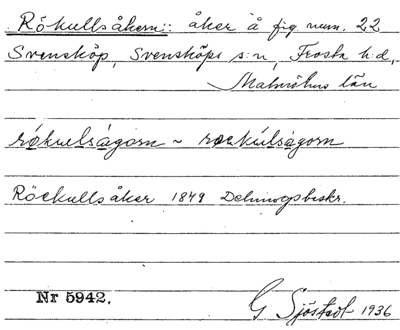 Rökullsåkern: åker å fig. num. 22
Svensköp, Svensköps s:n, Frosta h:d,
Malmöhus län
rókulságorn ~ rockúlságorn
Röckullsåker 1849 Delningsbeskr.
Nr 5942.
G Sjöstedt 1936